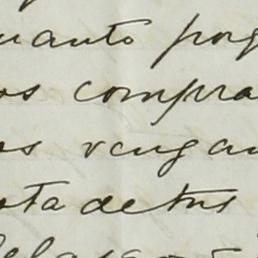 uanto porq
os compra
os vengan
ota de tus